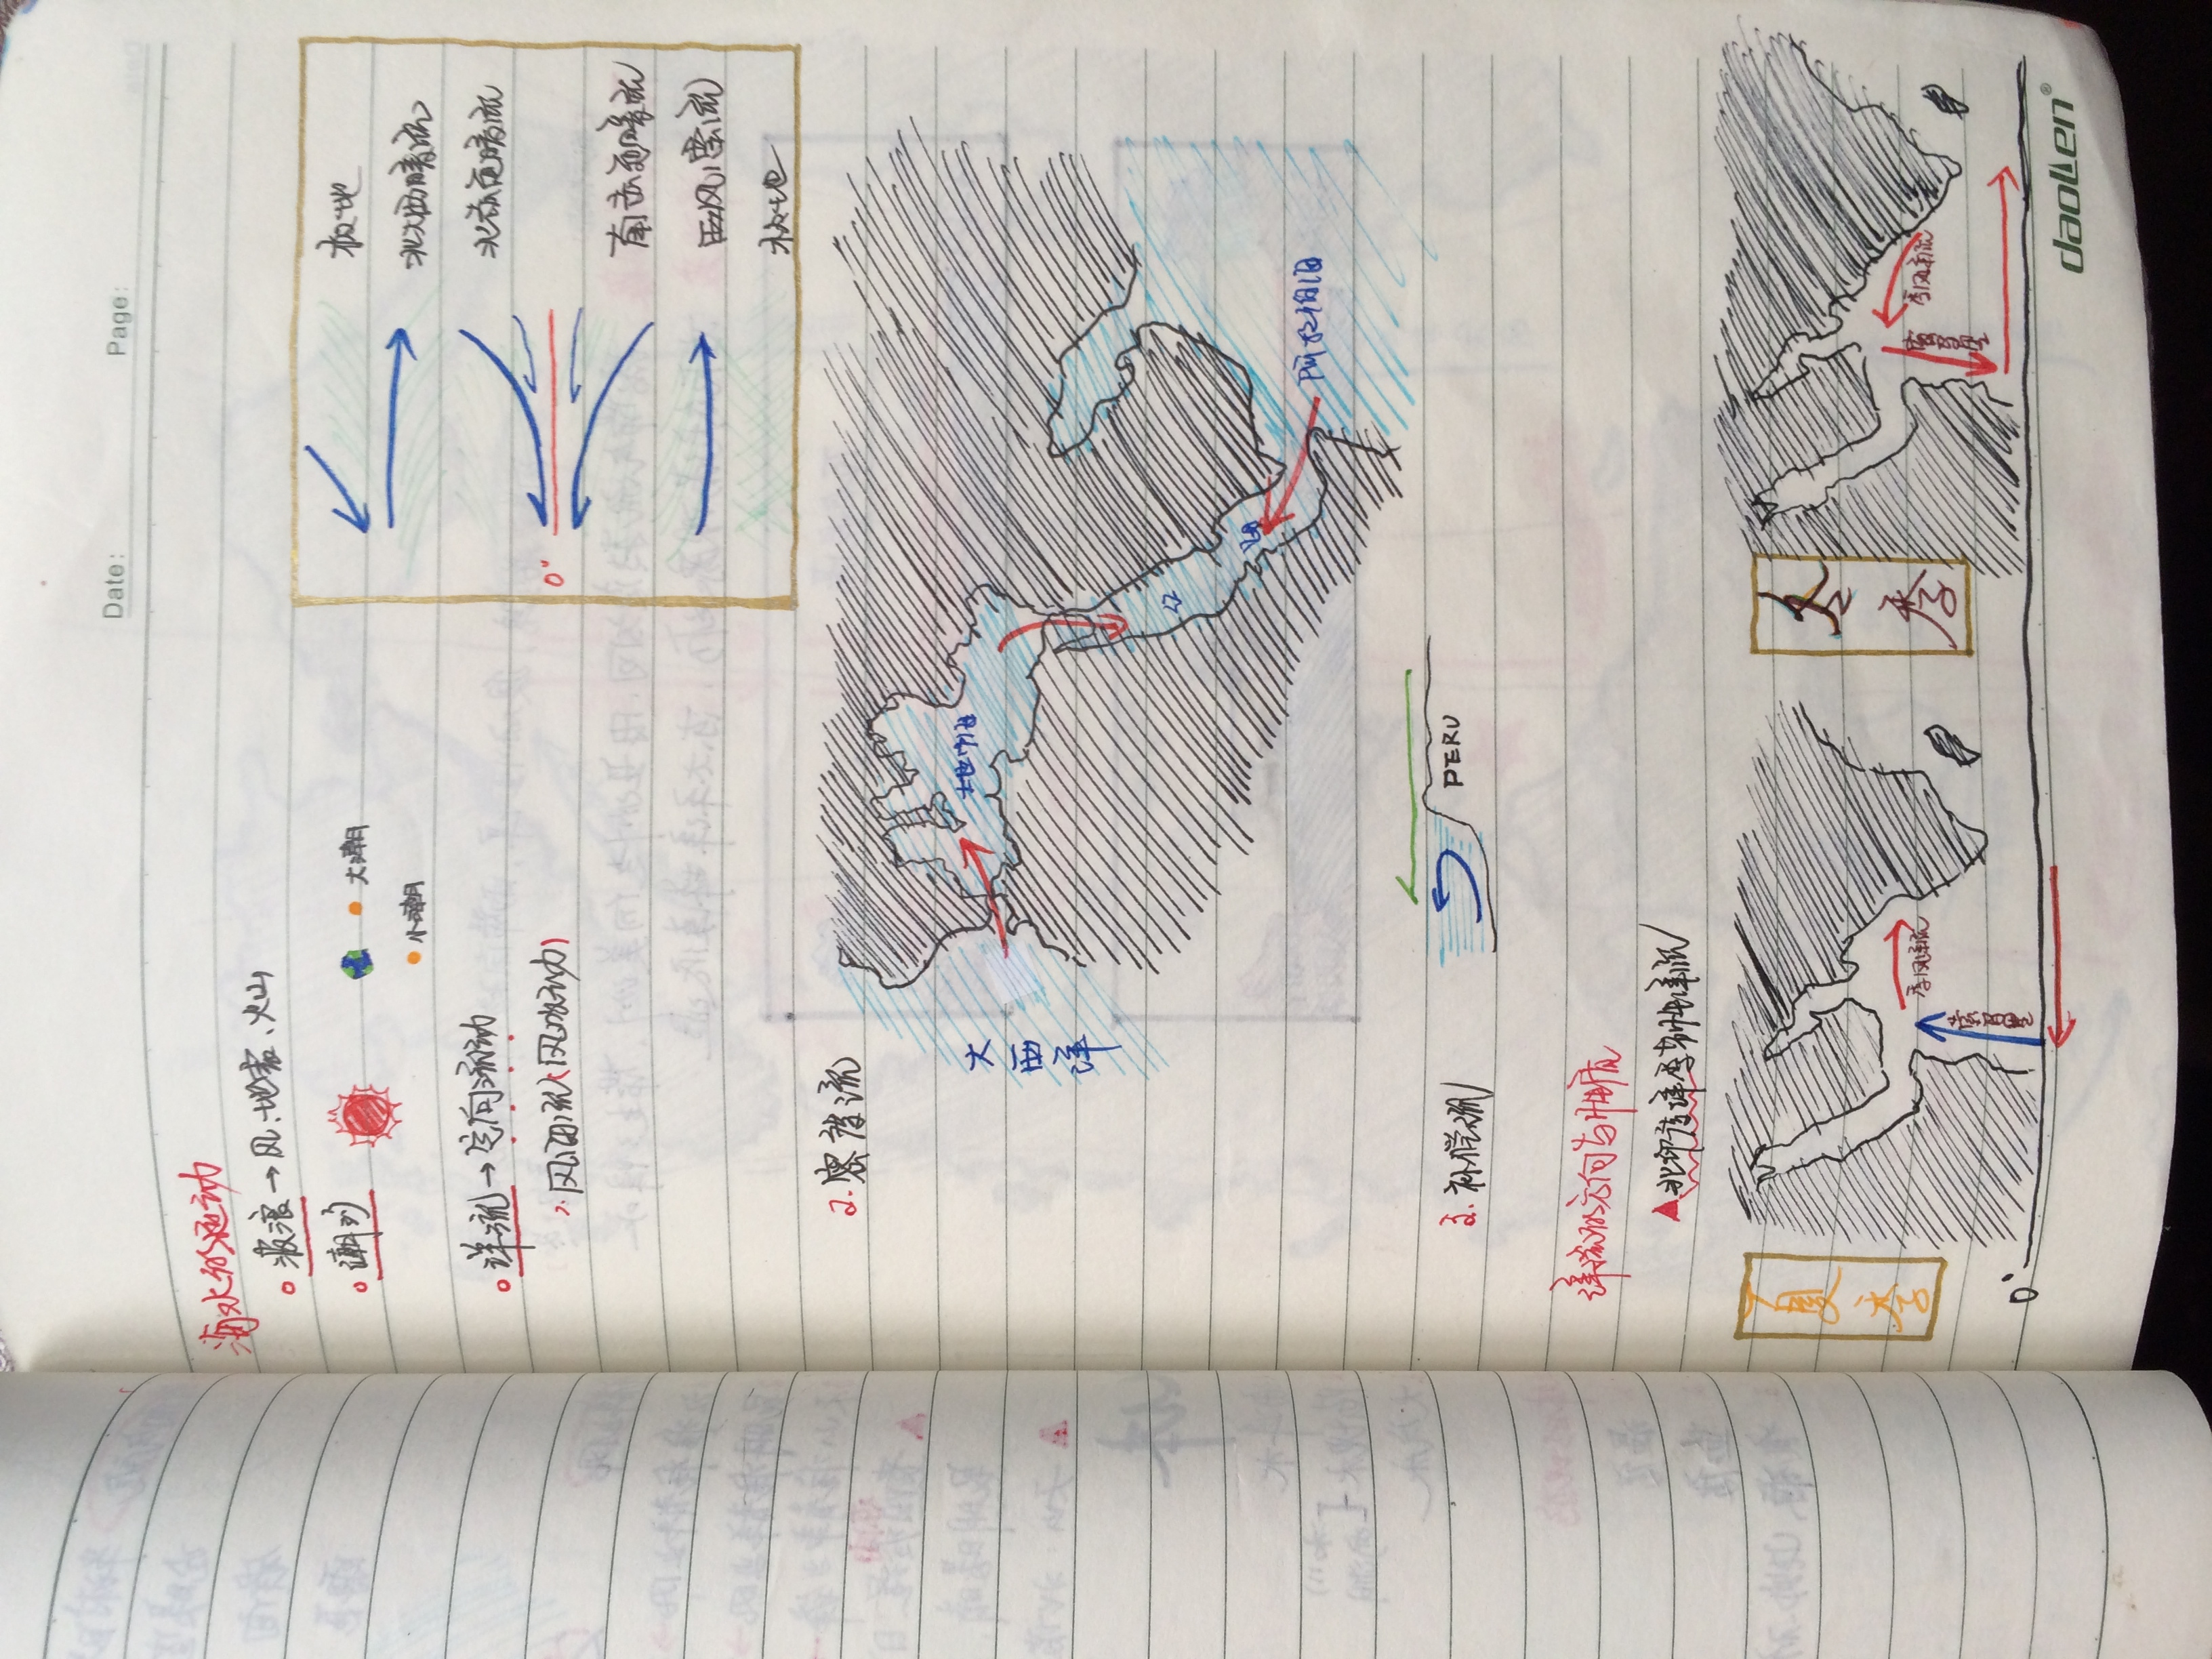 Date:
Page:
海水的运动
波浪→风、地震、火山
潮汐
大潮
小潮
洋流→定向流动
1. 风海流(风吹动)
极地
北大西暖流
北赤道暖流
0°
南赤道暖流
西风漂流
极地
2. 密度流
大西洋
地中海
红
海
阿拉伯海
3. 补偿流
PERU
洋流的方向与性质
北印度洋季节性洋流
夏季
季风洋流
索马里
冬季
季风洋流
索马里
0°
daolen®